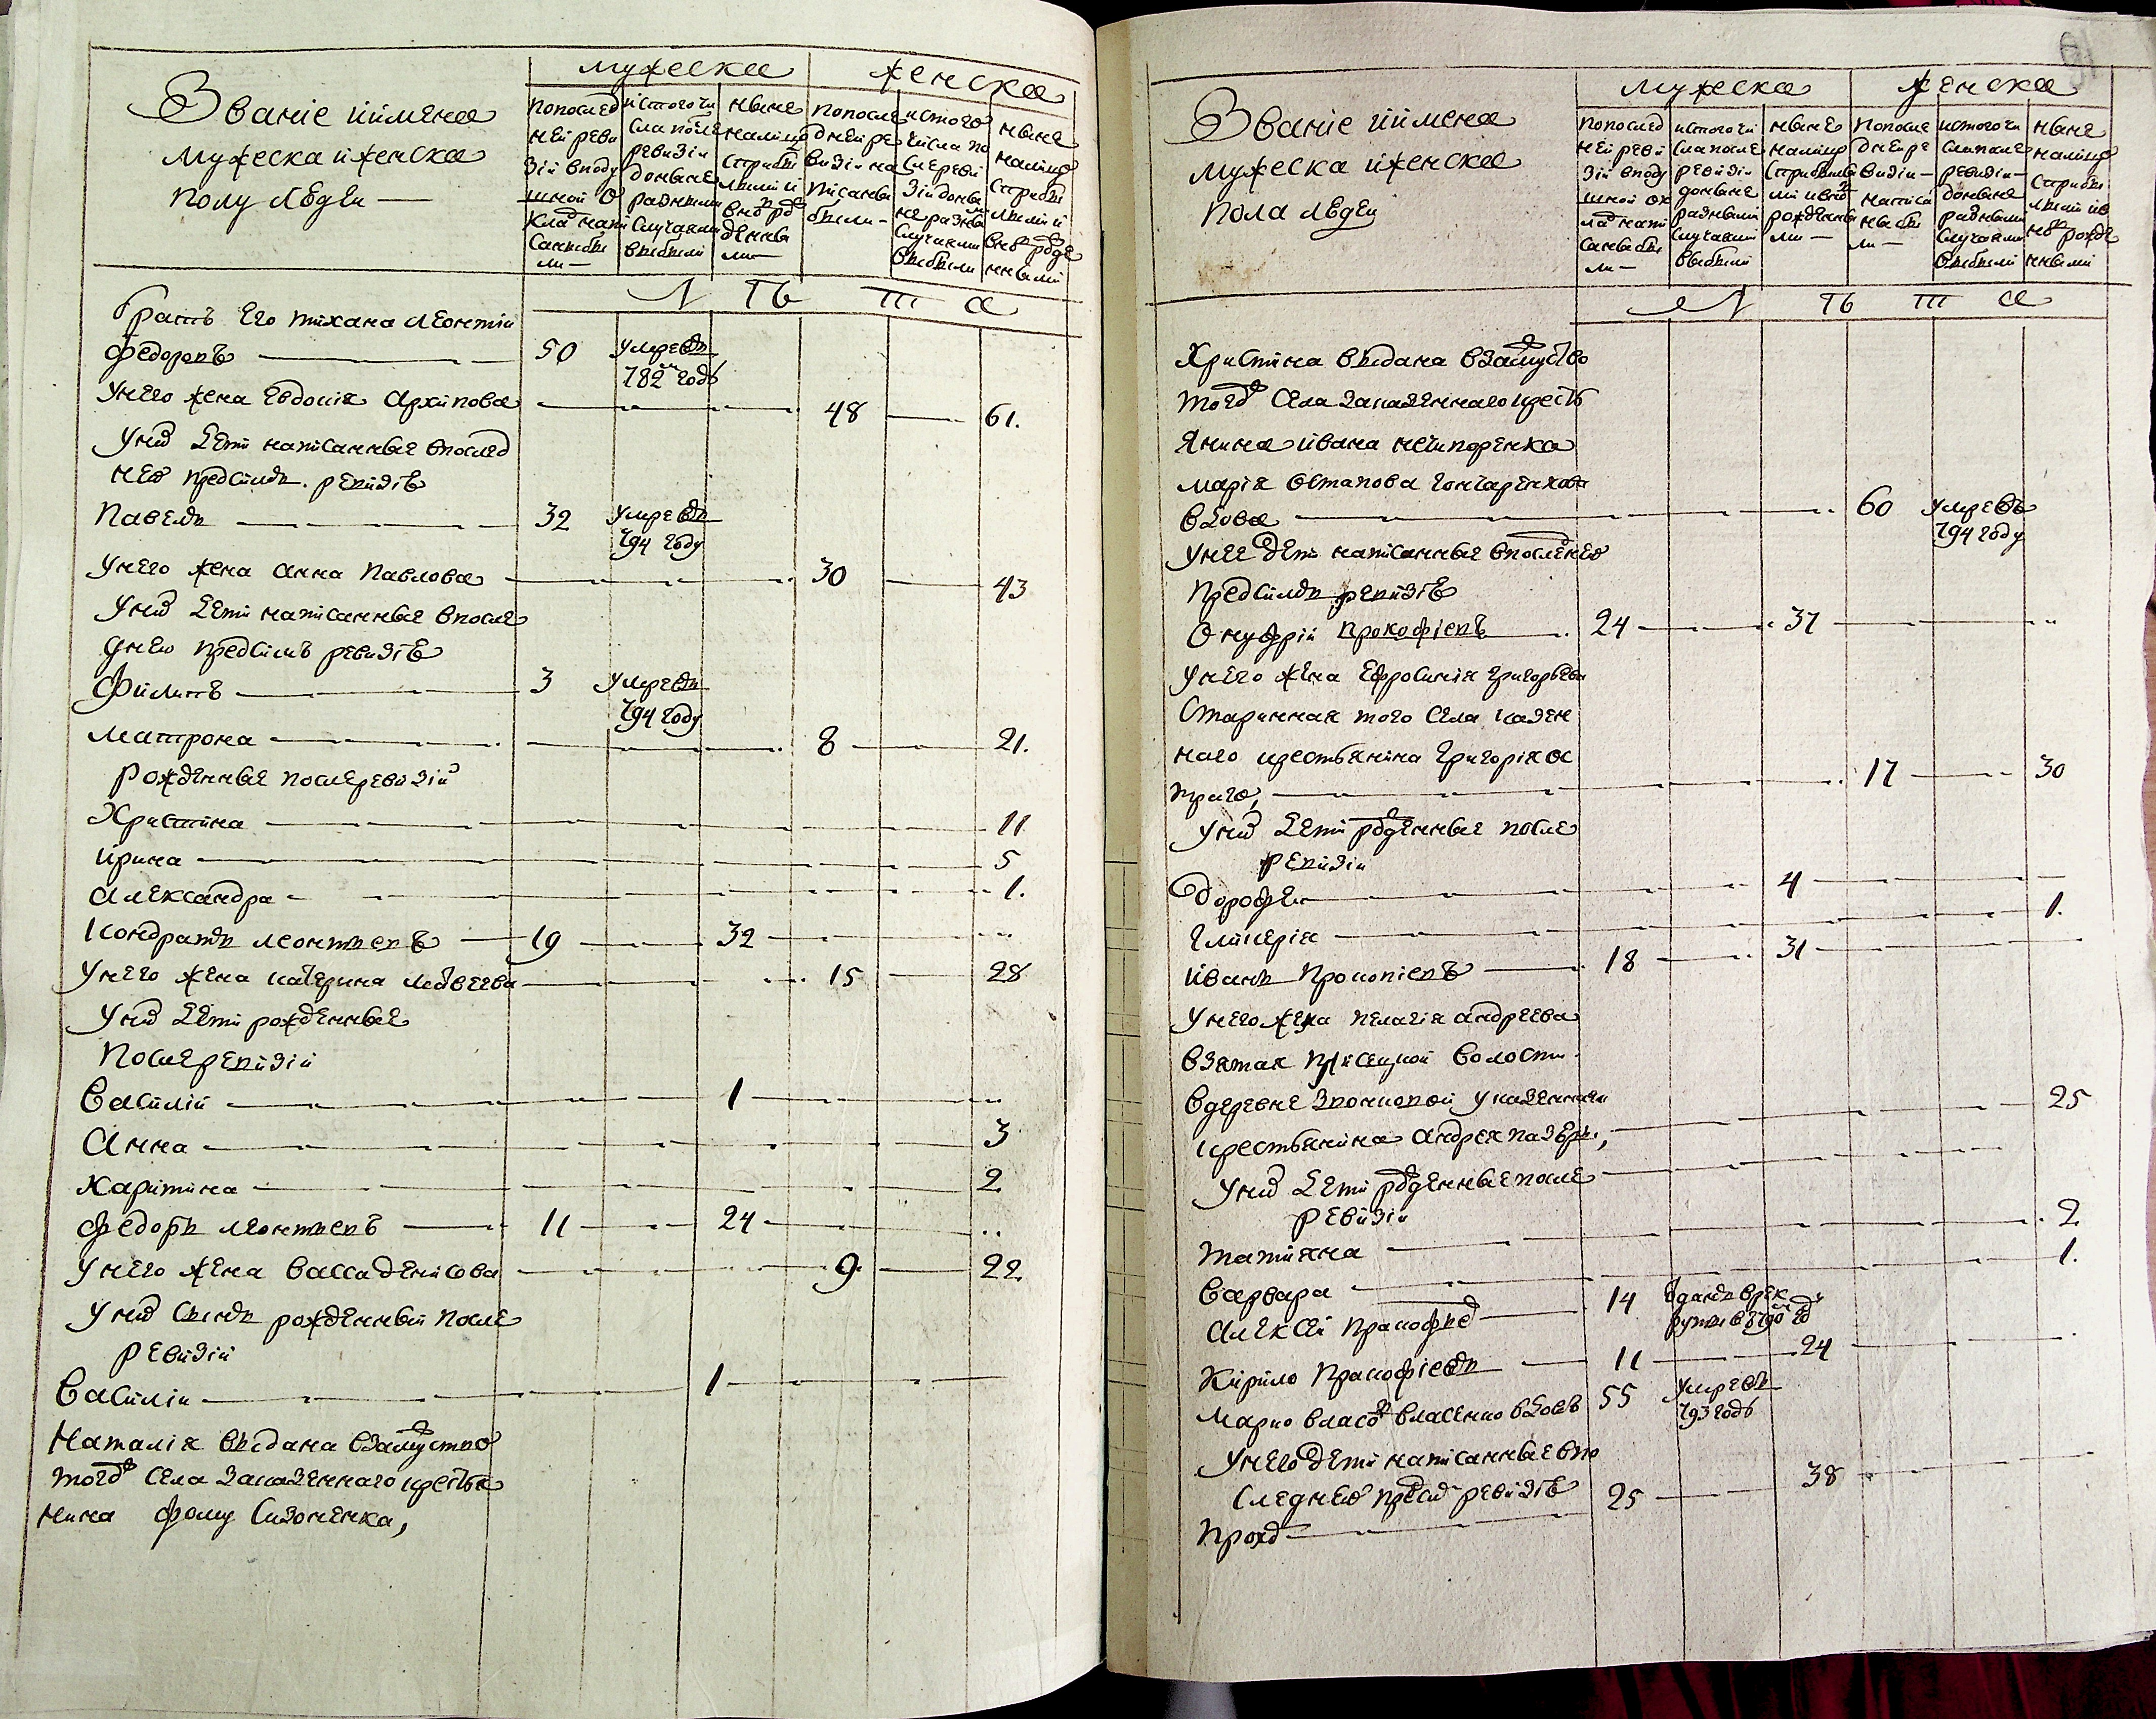 Званіе иймена
мужеска иженска
полу людеи —
мужеска
женска
попослед
ней реви
зіи вподу
шной о
клад напи
саныбы
ли —
истого чи
сла после
ревизіи
доныне
разными
случаями
выбыли
ныне
налицо
сприбы
лыми и
вновь рож
денны
ми —
попосле
дней ре
визіи на
писаны
были —
истого
числа по
сле реви
зіи доны
не разны
случаями
выбыли
ныне
налицо
сприбы
лыми и
вновь рожде
нными
Л Ѣ Т А
братъ его тихана леонтіи
федоровъ — 50 умревъ
782 году
унего жена евдокія архипова — 48 — 61.
унихъ дети написанные впослед
нею предсимъ ревизіѣ
павелъ — 32 умревъ
794 году
унего жена анна павлова — 30 — 43
унихъ дети написанные впосле
днею предсимъ ревизіѣ
филипъ — 3 умревъ
794 году
матрона — 8 — 21.
рожденные послеревизіи
христина — 11
ирина — 5
александра — 1.
кондратъ леонтьевъ — 19 — 32
унего жена катерина матвеева — 15 — 28
унихъ дети рожденные
послеревизіи
василій — 1
анна — 3
харитина — 2
федоръ леонтьевъ — 11 — 24
унего жена васса денисова — 9 — 22
унихъ сынъ рожденный после
ревизіи
василіи — 1
наталія выдана взамуство
тогожъ села заказенного крестья
нина фому сизоненка,
Званіе иймена
мужеска иженска
пола людеи
мужеска
женска
попослед
ней реви
зіи вподу
шной ок
лад напи
саны бы
ли —
истого чи
сла после
ревизіи
доныне
разными
случаями
выбыли
ныне
налицо
сприбылы
ми ивновь
рожденны
ми —
попосле
дней ре
визіи —
написа
ны бы
ли —
истого чи
сла после
ревизіи —
доныне
разными
случаями
выбыли
ныне
налицо
сприбы
лыми ив
новь рожде
нными
Л Ѣ Т А
христина выдана взамуство
тогожъ села заказенного кресть
янина ивана нечипоренка
марія остапова гончаренкова
вдова — 60 умревъ
794 году
унее дети написанные впоследнею
предсимъ ревизіѣ
онуфрій прокофіевъ — 24 — 37
унего жена ефросинія григорьева
старинная того села казен
наго крестьянина григорія ос
траго, — 17 — 30
унихъ дети рожденные после
ревизіи
дорофеи — 4
гликерія — 1.
иванъ прокопіевъ — 18 — 31
унего жена пелагія андреева
взятая волости
вдеревне указенного
крестьянина андрея — 25
унихъ дети рожденные после
ревизіи
татіяна — 2
варвара — 1.
алексеи прокофьев — 14 отданъ врек
руты в 790 году
кирило прокофіевъ — 11 — 24
марко власов власенко вдовъ 55 умревъ
793 годѣ
унего дети написанные впо
следнею предсим ревизіѣ
прокоп — 25 — 38